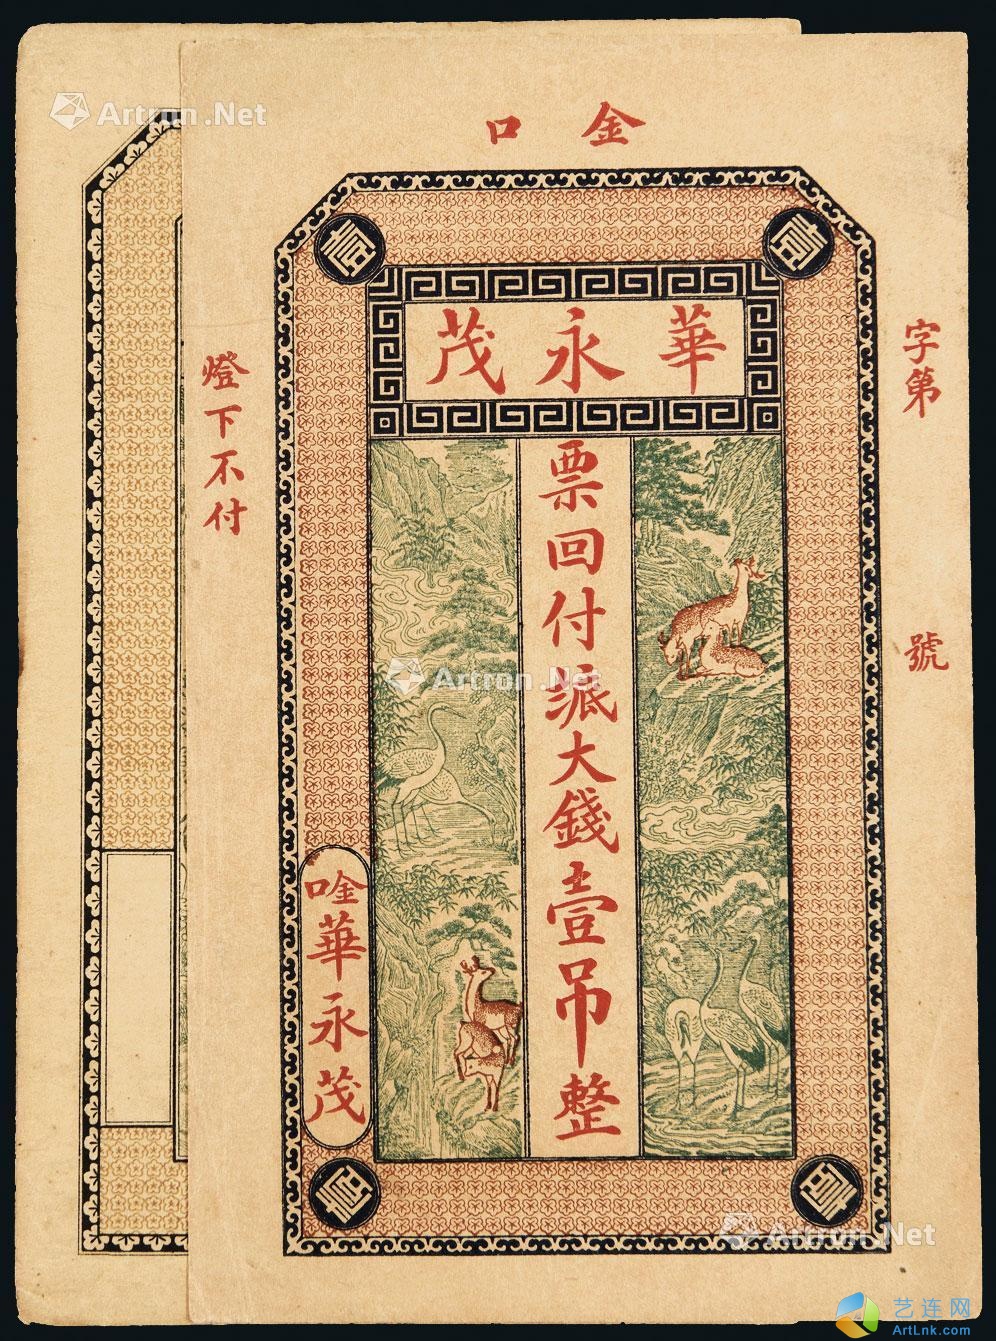 Artron.Net
金口
華永茂
字第 號
票回付派大錢壹吊整
燈下不付
金口
華永茂
Artron.Net
Artron.Net
艺连网
ArtLnk.com